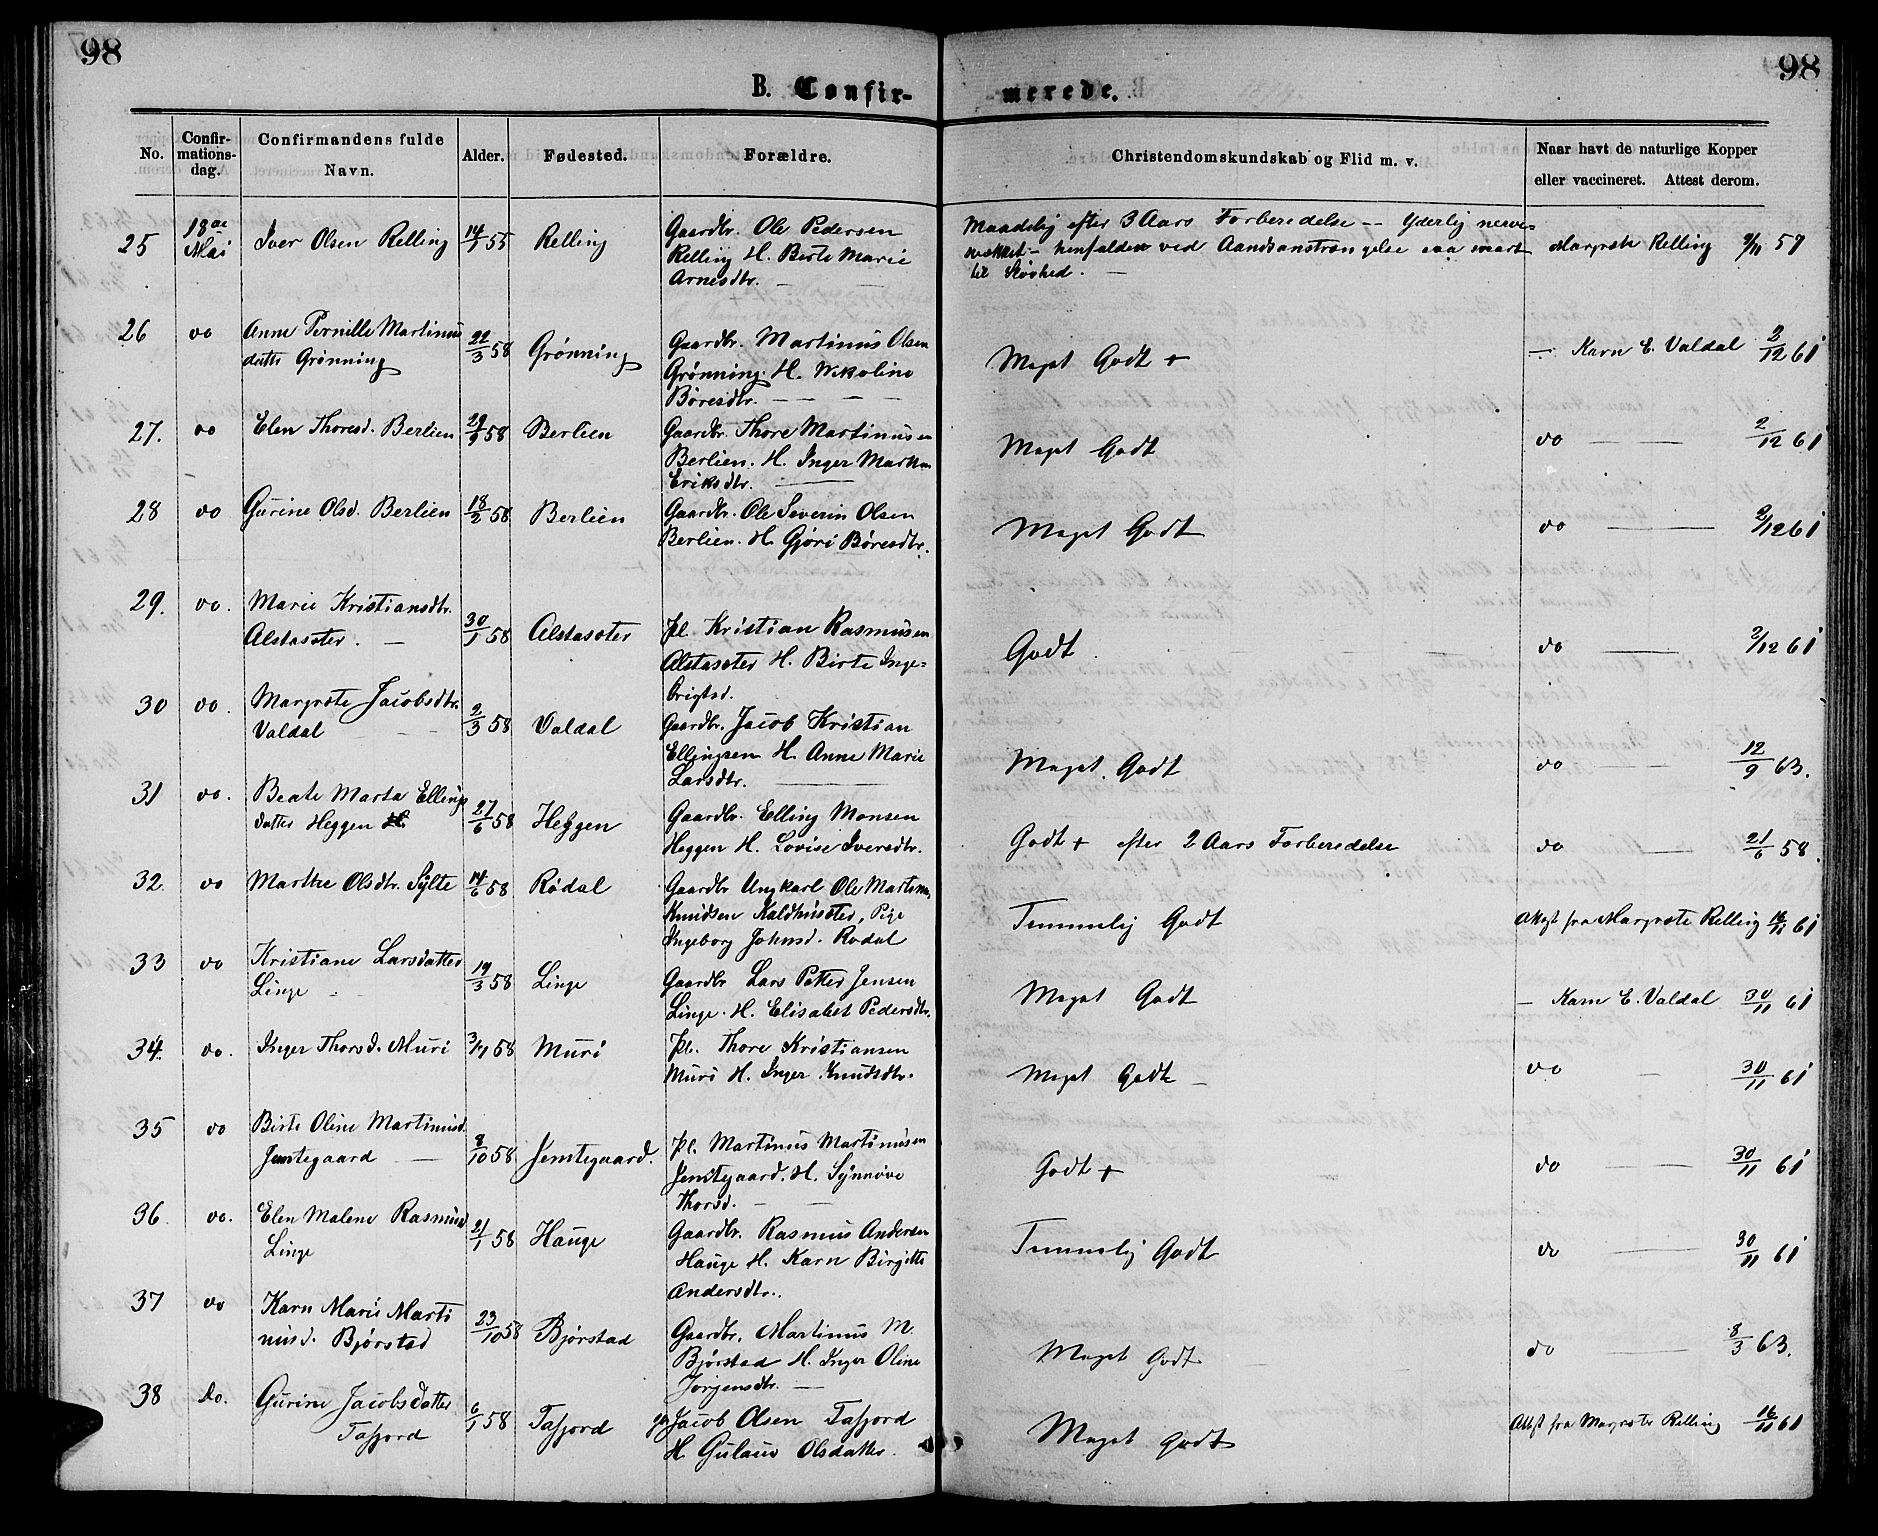 98
98
B. Confir-
merede.
No.
Confir-
mations-
dag.
Confirmandens fulde
Navn.
Alder.
Fødested.
Forældre.
Christendomskundskab og Flid m. v.
Naar havt de naturlige Kopper
eller vaccineret. Attest derom.
25 18de Mai Iver Olsen Relling 14/1 55 Relling
Gaardbr. Ole Pedersen
Relling H. Birte Marie
Arnesdtr.
Maadelig efter 3 Aars Forberedelse - Yderlig nerve-
svækket - henfalden ved Aandsanstrængelse saa snart
til Sløvhed.
Margrete Relling 9/11 57
26 do Anne Pernille Martinus
datter Grønning
22/3 58 Grønning
Gaardbr. Martinus Olsen
Grønning. H. Nikoline
Børesdtr.
Meget Godt +
- Karn E. Valdal 2/12 61
27. do Elen Thoresd. Berlien 29/9 58 Berlien
Gaardbr. Thore Martinusen
Berlien. H. Inger Marthe
Eriksdtr.
Meget Godt
do 2/12 61
28 do Gurine Olsd. Berlien 18/2 58 Berlien
Gaardbr. Ole Severin Olsen
Berlien. H. Gjøri Børesdtr.
Meget Godt
do 2/12 61
29. do. Marie Kristiansdtr.
Alstasæter.
30/1 58 Alstasæter
Pl. Kristian Rasmusen
Alstasæter H. Birte Inge=
brigtsd.
Godt.
do 2/12 61
30 do. Margrete Jacobsdtr.
Valdal
2/3 58 Valdal
Gaardbr. Jacob Kristian
Ellingsen H. Anne Marie
Larsdtr.
Meget Godt
do 12/9 63.
31 do. Beate Marta Ellings
datter Heggen
27/6 58 Heggen
Gaardbr. Elling Monsen
Heggen H. Lovise Iversdtr.
Godt + efter 2 Aars Forberedelse
do 21/6 58.
32. do Marthe Olsdtr. Sylte 14/6 58 Rødal
Gaardbr Ungkarl Ole Martinus
Knudsen Kaldhussæter, Pige
Ingeborg Johnsd. Rødal
Temmelig Godt
Attest fra Margrete Relling 16/11 61
33 do Kristiane Larsdatter
Linge
19/3 58 Linge
Gaardbr Lars Petter Jensen
Linge. H. Elisabet Pedersdtr.
Meget Godt
- Karn E. Valdal 30/11 61
34. do. Inger Thorsd. Muri 58 Muri
Pl. Thore Kristiansen
Muri H. Inger Knudsdtr.
Meget Godt
do 30/11 61
35 do Birte Oline Martinusd.
Jemtegaard
8/10 58 Jemtegaard.
Pl. Martinus Martinusen
Jemtegaard. H. Synnøve
Thorsd.
Godt +
do 30/11 61
36. do. Elen Malene Rasmusd
Linge
21/1 58 Hauge
Gaardbr. Rasmus Andersen
Hauge H. Karn Birgitte
Andersdtr.
Temmelig Godt
do 30/11 61
37 do Karn Marie Marti
nusd. Bjørstad
23/10 58 Bjørstad
Gaardbr. Martinus M.
Bjørstad H. Inger Oline
Jørgensdtr.
Meget Godt
do 8/3 63.
38 do. Gurine Jacobsdatter
Tafjord
6/1 58 Tafjord
Jacob Olsen Tafjord
H. Gulaug Olsdatter.
Meget godt
Attest fra Margrete Relling 16/11 61